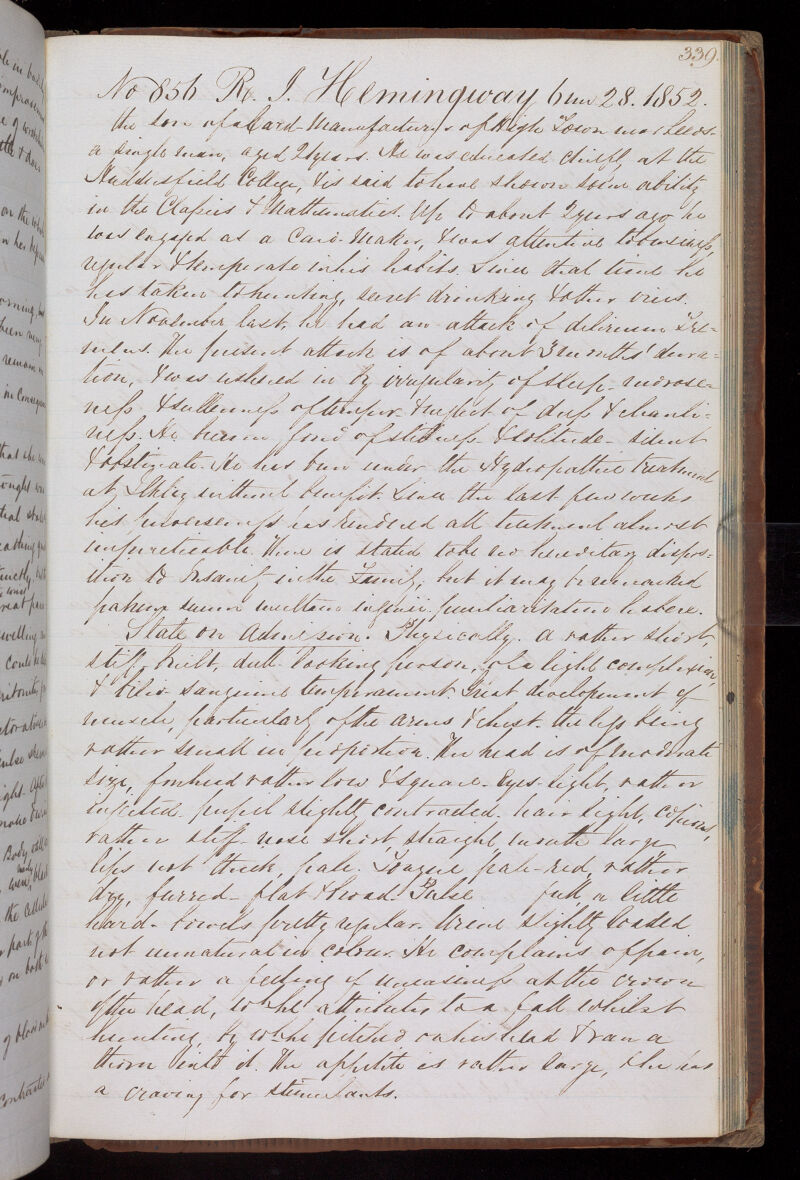 339.
No 856 R. I. Hemingway 6mo 28. 1852.
the son of a Card-Manufacturer of High Town near Leeds-
a single man, aged 24 years. He was educated chiefly at the
Huddersfield College, & is said to have shown some ability
in the Classics & Mathematics. Up to about 2 years ago he
was engaged as a Card-Maker, & was attentive to business,
regular & temperate in his habits. Since that time he
has taken to hunting, secret drinking & other vices.
In November last, he had an attack of delirium Tre-
mens. The present attack is of about 3 months' dura-
tion, & was ushered in by irregularity of sleep- morose-
ness & sullenness of temper & neglect of dress & cleanli-
ness. He became fond of stillness & solitude- silent
& obstinate. He has been under the Hydropathic treatment
at Ilkley without benefit. Since the last few weeks
his moroseness has rendered all treatment almost
impracticable. There is stated to be no hereditary dispos-
ition to Insanity in the Family, but it may be remarked
patrem suum multam ingenii peculiaritatem habere.
State on Admission. Physically. a rather short,
stiff-built, dull-looking person, of a light complexion,
& bilio sanguine temperament. Great development of
muscle, particularly of the arms & chest. the legs being
rather small in proportion. The head is of moderate
size, forehead rather low & square- Eyes light, rather
injected. pupil slightly contracted. hair light, copious,
rather stiff- nose short, straight, mouth large
lips not thick, pale. Tongue pale-red, rather
dry, furred- flat & broad. Pulse full, a little
hard. bowels pretty regular. Urine slightly loaded
not unnatural in colour. He complains of pain,
or rather a feeling of uneasiness at the crown
of the head, wch he attributes to a fall whilst
hunting, by wch he pitched on his head & ran a
thorn into it. The appetite is rather large, & he has
a craving for stimulants.